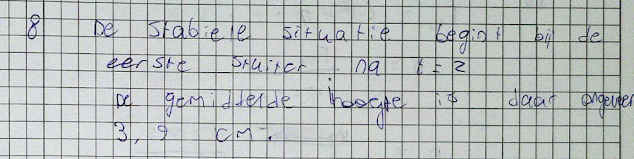 8 De stabiele situatie begint bij de
eerste stuiter na t = 2
De gemiddelde hoogte is daar ongeveer
3,9 cm.